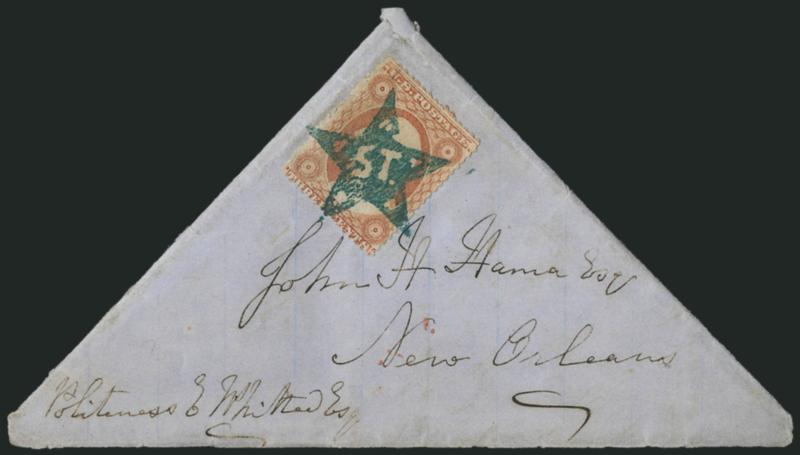 U.S. POSTAGE
ST.
John H Hama Esq
New Orleans
Politeness E Whitted Esq